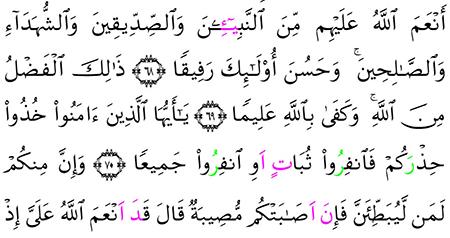 أَنْعَمَ ٱللَّهُ عَلَيْهِم مِّنَ ٱلنَّبِيـِٔـۧنَ وَٱلصِّدِّيقِينَ وَٱلشُّهَدَآءِ
وَٱلصَّـٰلِحِينَ ۚ وَحَسُنَ أُو۟لَـٰٓئِكَ رَفِيقًا ۝٦٨ ذَٰلِكَ ٱلْفَضْلُ
مِنَ ٱللَّهِ ۚ وَكَفَىٰ بِٱللَّهِ عَلِيمًا ۝٦٩ يَـٰٓأَيُّهَا ٱلَّذِينَ ءَامَنُوا۟ خُذُوا۟
حِذْرَكُمْ فَٱنفِرُوا۟ ثُبَاتٍ اَوِ ٱنفِرُوا۟ جَمِيعًا ۝٧٠ وَإِنَّ مِنكُمْ
لَمَن لَّيُبَطِّئَنَّ فَإِنَ اَصَـٰبَتْكُم مُّصِيبَةٌ قَالَ قَدَ اَنْعَمَ ٱللَّهُ عَلَىَّ إِذْ